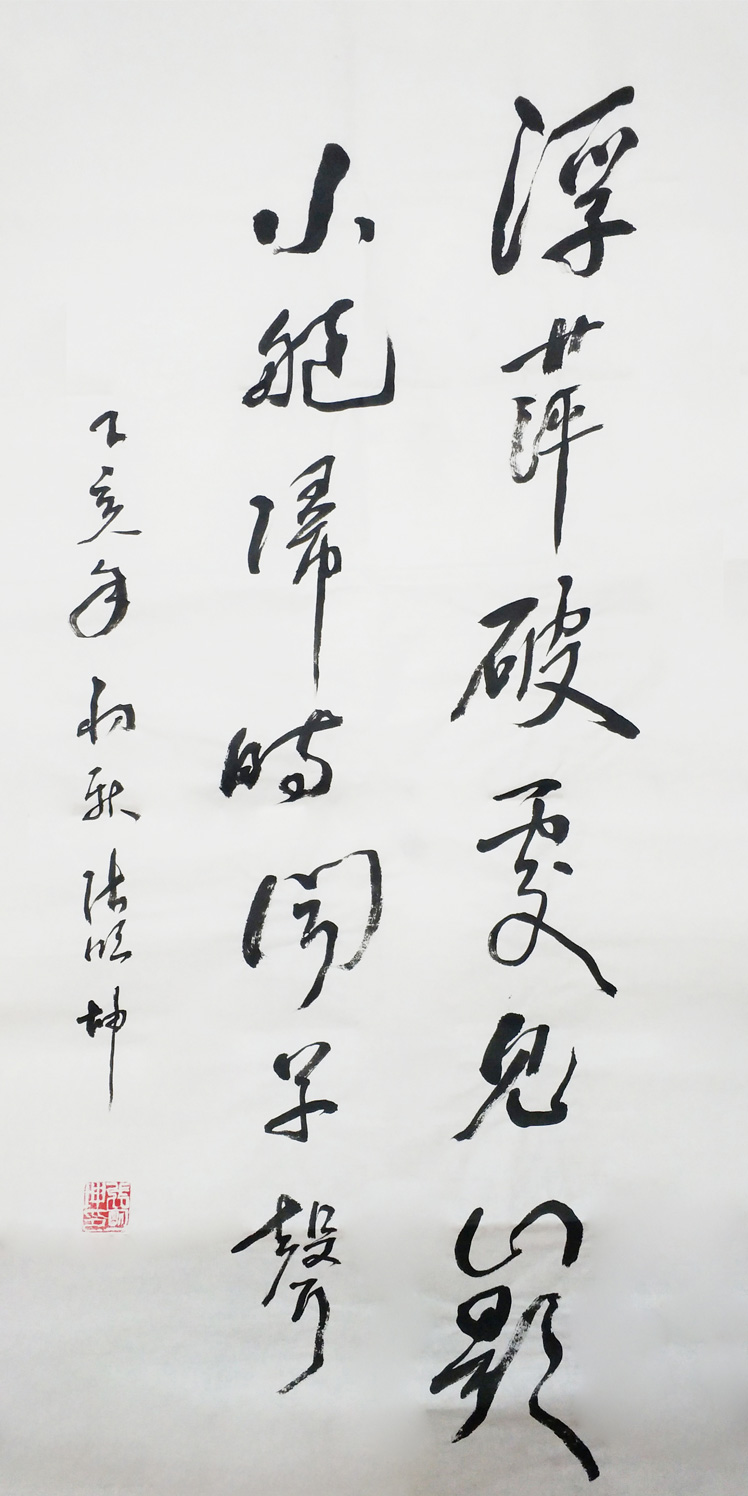 浮萍破處見山影
小艇歸時聞草聲
己亥年初秋張坤